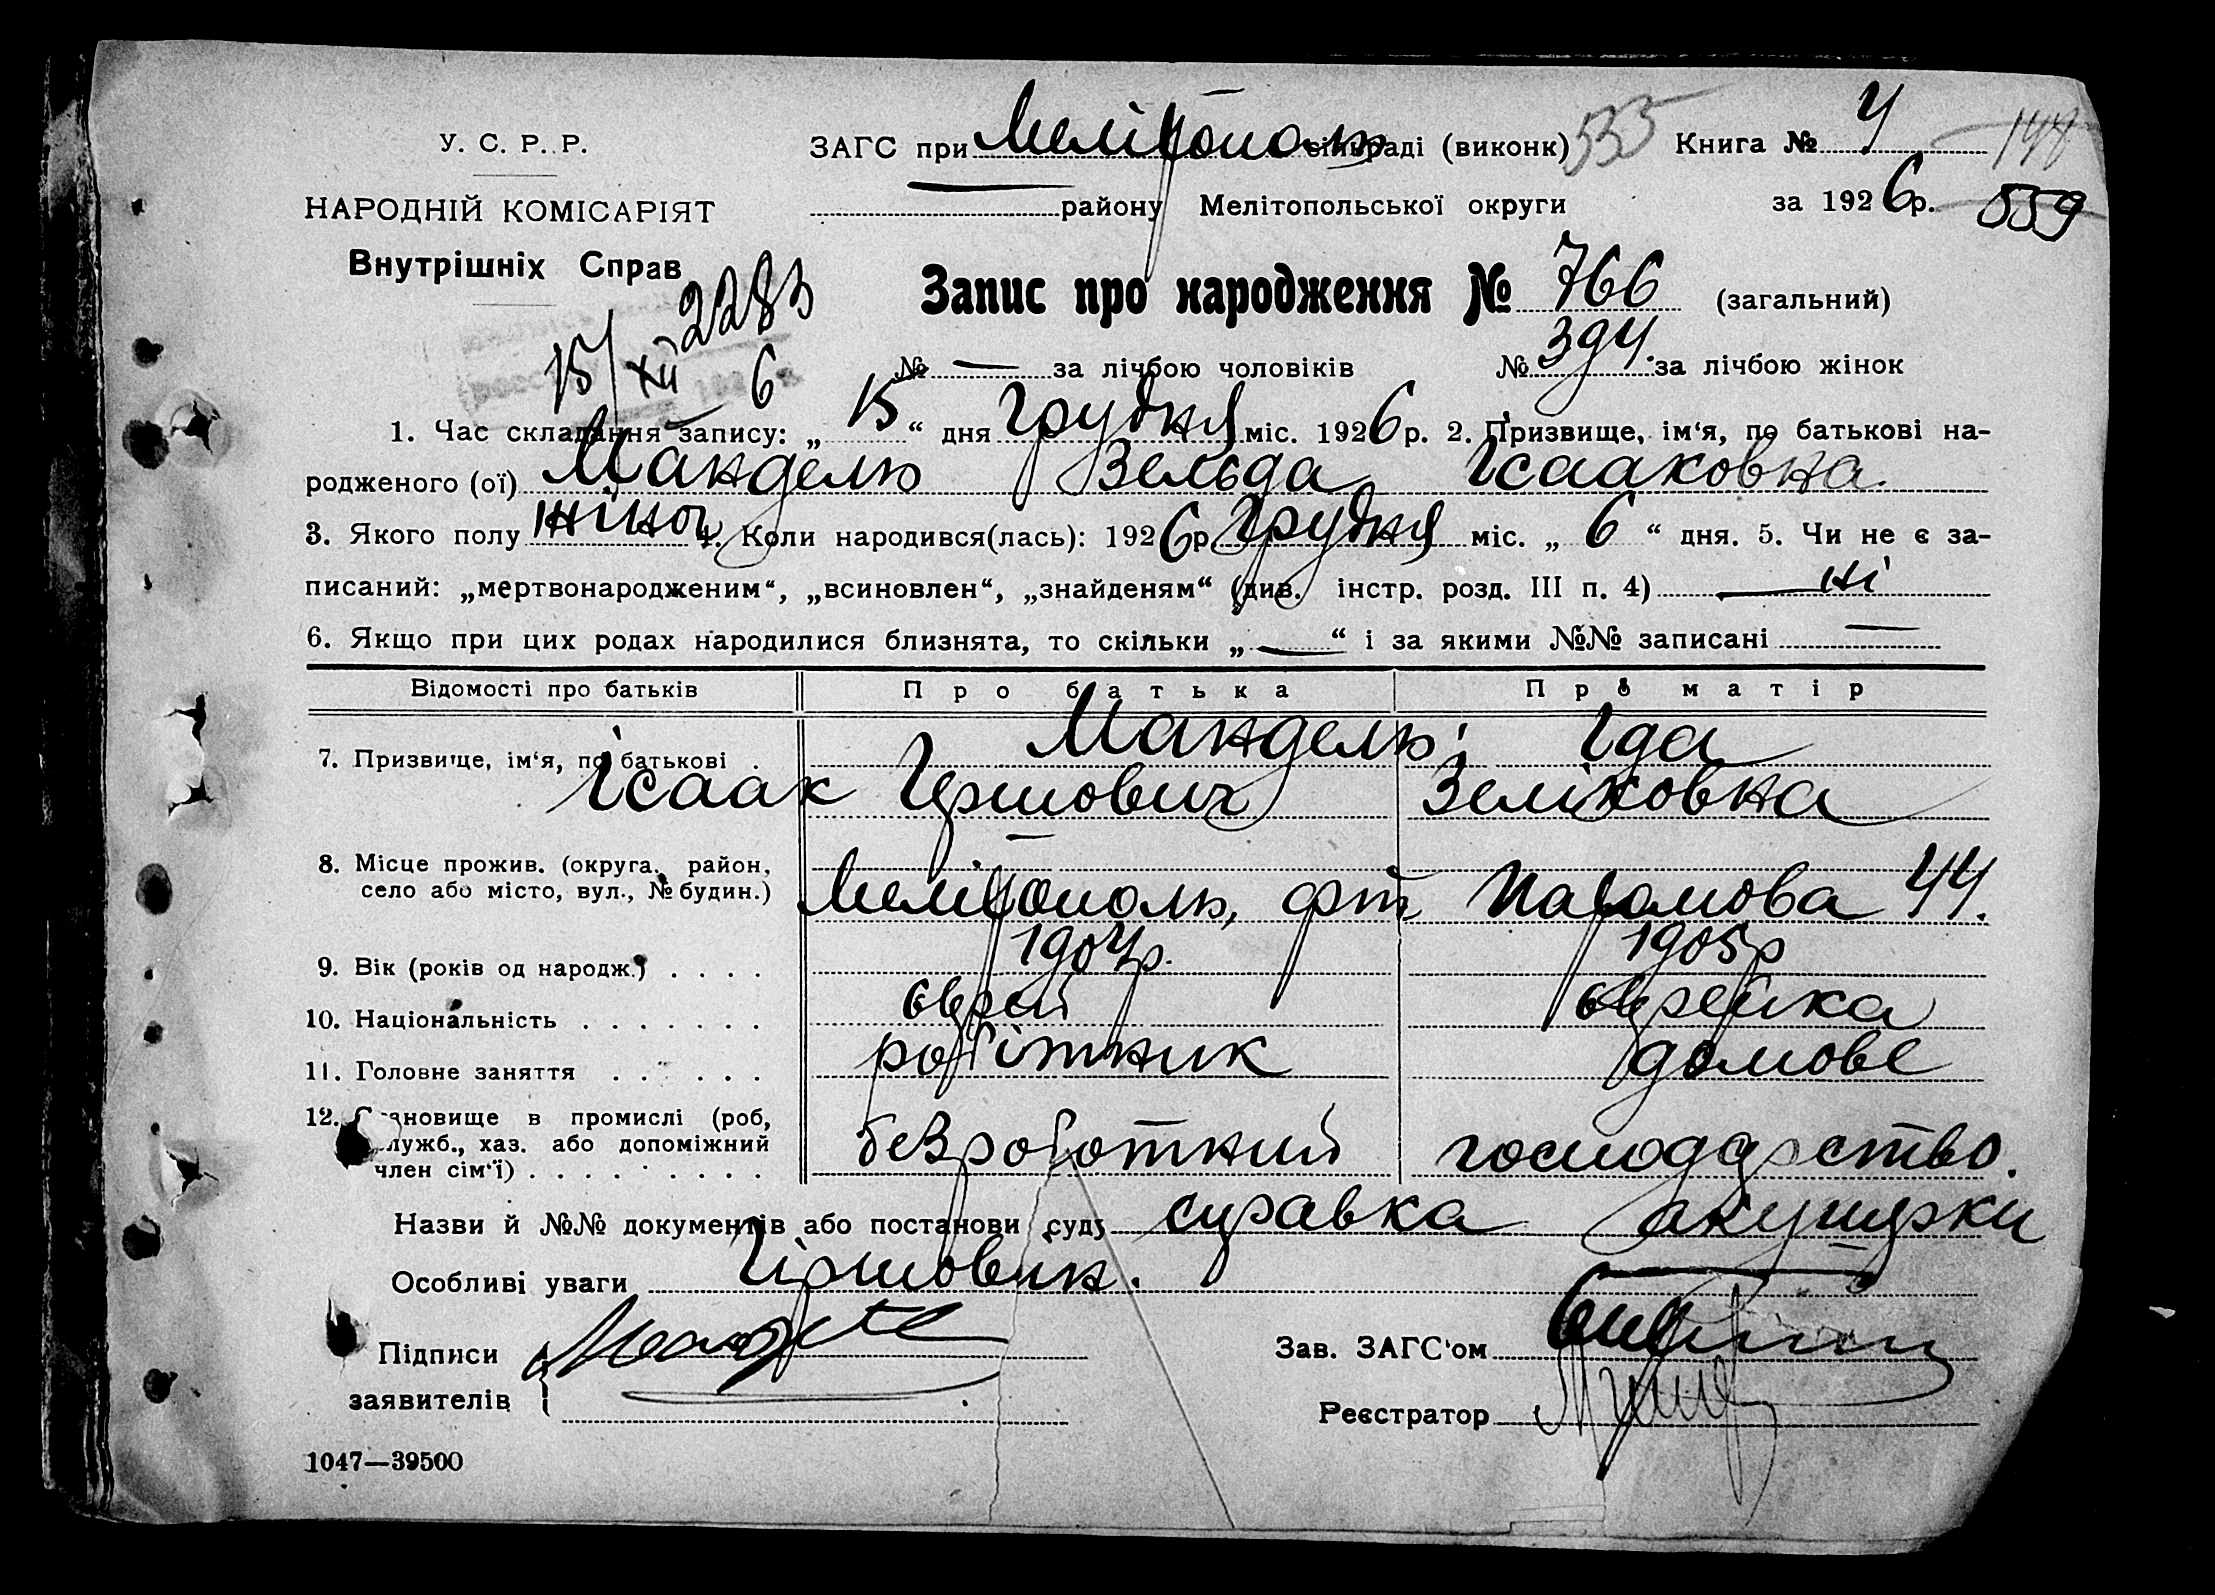 У. С. Р. Р.
НАРОДНІЙ КОМІСАРІЯТ
Внутрішніх Справ
ЗАГС при Мелітополь сільраді (виконк) 535 Книга № 4
району Мелітопольської округи за 1926 р. 559
Запис про народження № 766 (загальний)
2283
15/XII 6
№ — за лічбою чоловіків № 394 за лічбою жінок
1. Час складання запису: „ 15 “ дня Грудня міс. 1926 р. 2. Призвище, ім‘я, по батькові на-
родженого (ої) Мандель Зельда Ісааковна
3. Якого полу жіноч 4. Коли народився(лась): 1926 р. Грудня міс. „ 6 “ дня. 5. Чи не є за-
писаний: „мертвонародженим“, „всиновлен“, „знайденям“ (див. інстр. розд. III п. 4) — ні
6. Якщо при цих родах народилися близнята, то скільки „ — “ і за якими №№ записані —
Відомості про батьків Про батька Про матір
7. Призвище, ім‘я, по батькові . Мандель: Іда
Ісаак Гершович Зеліковна
8. Місце прожив. (округа, район,
село або місто, вул., № будин.) Мелітополь, 44.
9. Вік (років од народж.) . . . . 1904р. 1905р
10. Національність . . . . . . . еврей еврейка
11. Головне заняття . . . . . . робітник домове
12. Становище в промислі (роб,
служб., хаз. або допоміжний
член сім‘ї) . . . . . . . . безроботний господарство.
Назви й №№ документів або постанови суду справка акушерки
Особливі уваги
Підписи
заявителів
Зав. ЗАГС‘ом
Реєстратор
1047—39500